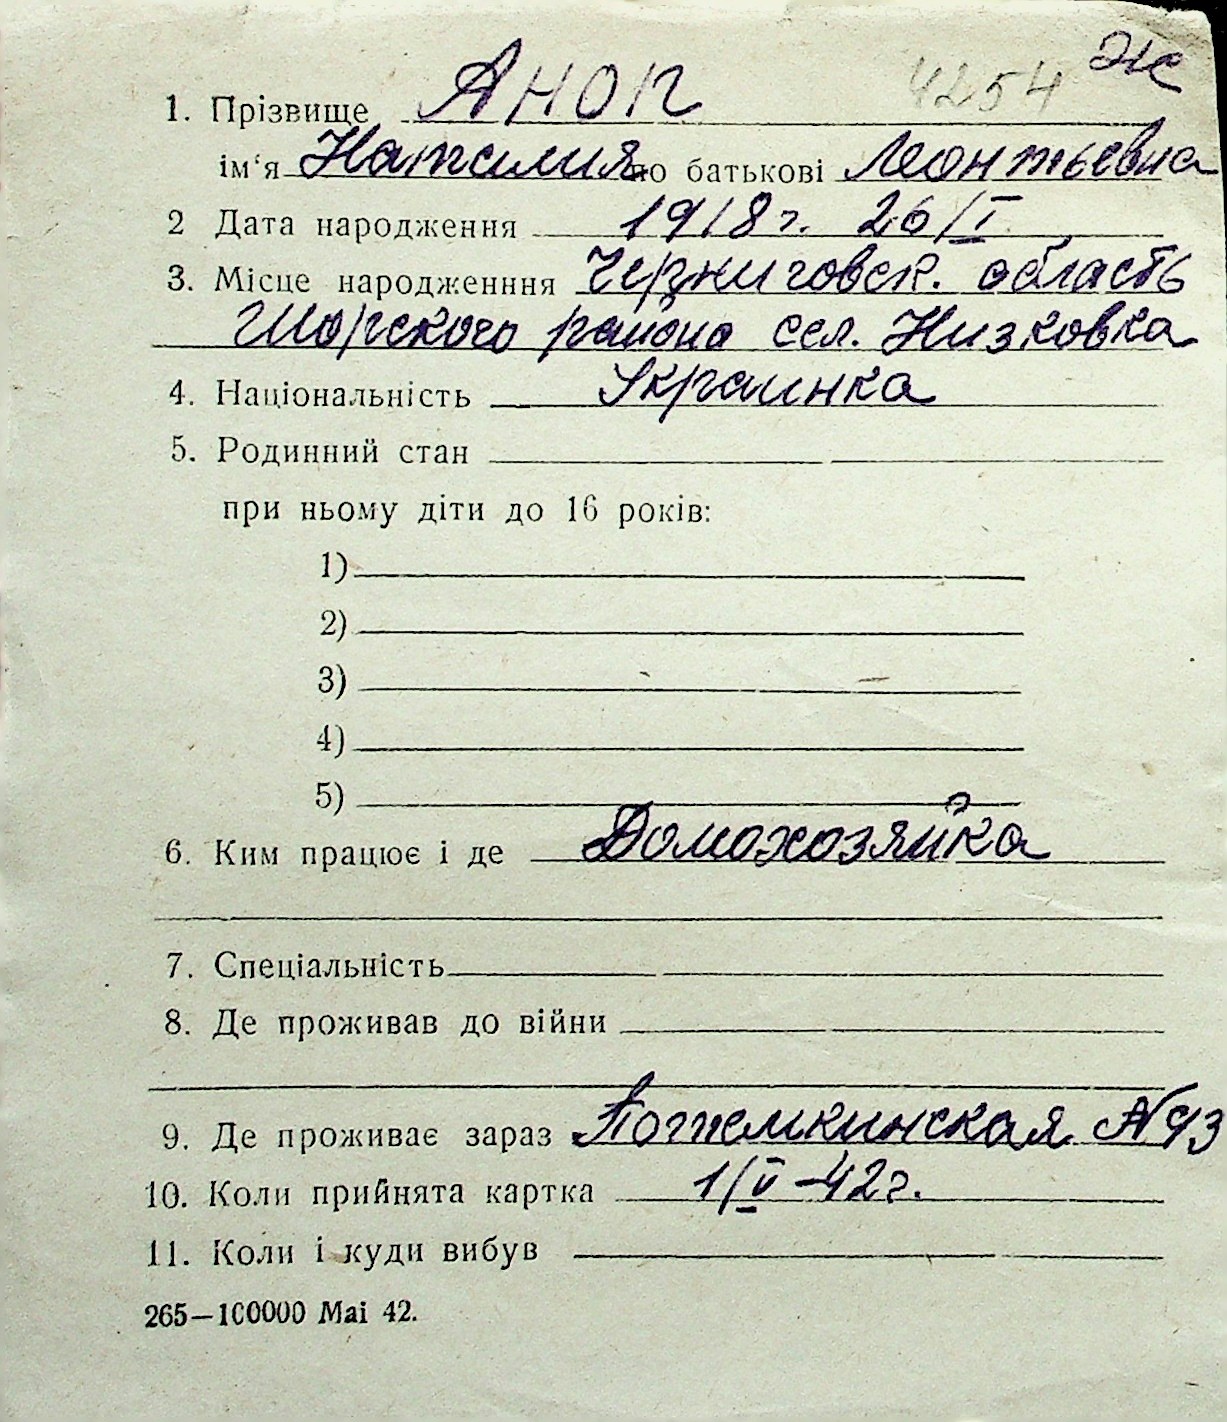 4254 Ж
1. Прізвище Аноп
ім‘я Наталия по батькові Леонтьевна
2 Дата народження 1918 г. 26/I
3. Місце народженння Черниговск. область
Щорского района сел. Низковка
4. Національність Украинка
5. Родинний стан
при ньому діти до 16 років:
1)
2)
3)
4)
5)
6. Ким працює і де Домохозяйка
7. Спеціальність
8. Де проживав до війни
9. Де проживає зараз Потемкинская №93
10. Коли прийнята картка 1/V-42 г.
11. Коли і куди вибув
265—100000 Mai 42.